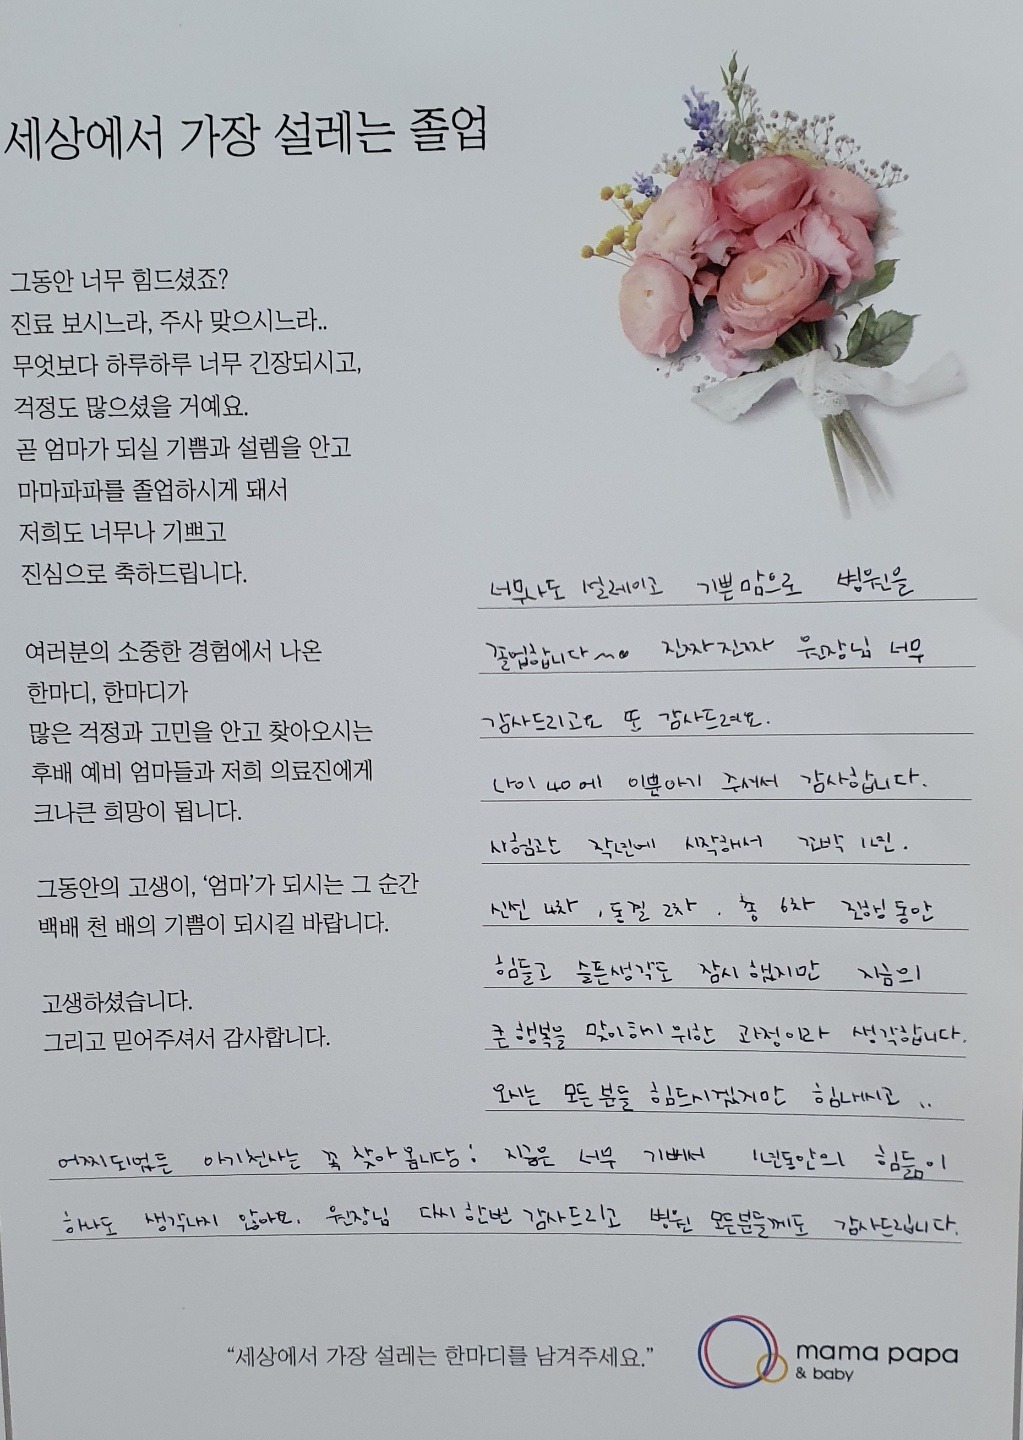 세상에서 가장 설레는 졸업
그동안 너무 힘드셨죠?
진료 보시느라, 주사 맞으시느라..
무엇보다 하루하루 너무 긴장되시고,
걱정도 많으셨을 거예요.
곧 엄마가 되실 기쁨과 설렘을 안고
마마파파를 졸업하시게 돼서
저희도 너무나 기쁘고
진심으로 축하드립니다.
여러분의 소중한 경험에서 나온
한마디, 한마디가
많은 걱정과 고민을 안고 찾아오시는
후배 예비 엄마들과 저희 의료진에게
크나큰 희망이 됩니다.
그동안의 고생이, ‘엄마’가 되시는 그 순간
백배 천 배의 기쁨이 되시길 바랍니다.
고생하셨습니다.
그리고 믿어주셔서 감사합니다.
너무나도 설레이고 기쁜맘으로 병원을
졸업합니다~ 진짜진짜 원장님 너무
감사드리고요 또 감사드려요.
나이 40에 이쁜아기 주셔서 감사합니다.
시험관 작년에 시작해서 꼬박 1년.
신선 4차, 동결 2차. 총 6차 진행동안
힘들고 슬픈생각도 잠시 했지만 지금의
큰행복을 맞이하기위한 과정이라 생각합니다.
오시는 모든분들 힘드시겠지만 힘내시고..
어찌되었든 아기천사는 꼭 찾아옵니당; 지금은 너무 기뻐서 1년동안의 힘듦이
하나도 생각나지 않아요. 원장님 다시한번 감사드리고 병원 모든분들께도 감사드립니다.
“세상에서 가장 설레는 한마디를 남겨주세요.”
mama papa
& baby